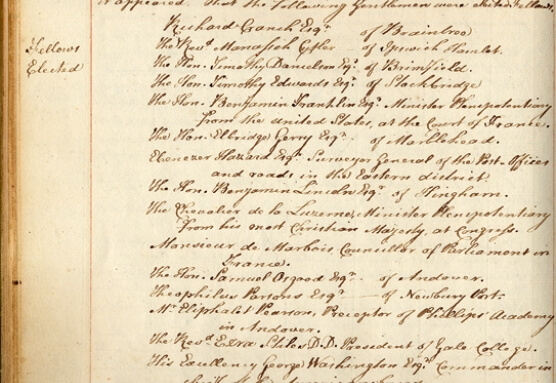 it appeared that the following Gentlemen were elected Fellows,
Fellows
Elected
Richard Cranch Esqr. of Braintree
The Revd. Manasseh Cutler — of Ipswich Hamlet.
The Hon. Timothy Danielson Esqr. of Brimfield.
The Hon. Timothy Edwards Esqr. of Stockbridge
The Hon. Benjamin Franklin Esqr. Minister Plenipotentiary
from the United States, at the Court of France.
The Hon. Elbridge Gerry Esqr. of Marblehead.
Ebenezer Hazard Esqr. Surveyor General of the Post Offices
and roads in the Eastern district.
The Hon. Benjamin Lincoln Esqr. of Hingham.
The Chevalier de la Luzerne, Minister Plenipotentiary
from his most Christian Majesty, at Congress.
Monsieur de Marbois, Councillor of Parliament in
France.
The Hon. Samuel Osgood Esqr. of Andover.
Theophilus Parsons Esqr. — of Newbury Port.
Mr. Eliphalet Pearson, Preceptor of Phillips' Academy
in Andover.
The Revd. Ezra Stiles D.D. President of Yale College.
His Excellency George Washington Esqr. Commander in